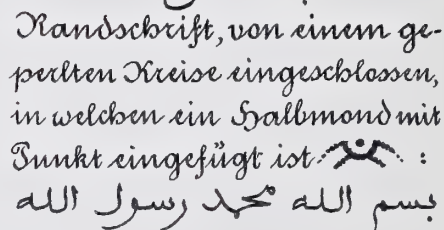 Randschrift, von einem ge-
perlten Kreise eingeschlossen,
in welchen ein Halbmond mit
Punkt eingefügt ist :
بسم الله محمد رسول الله